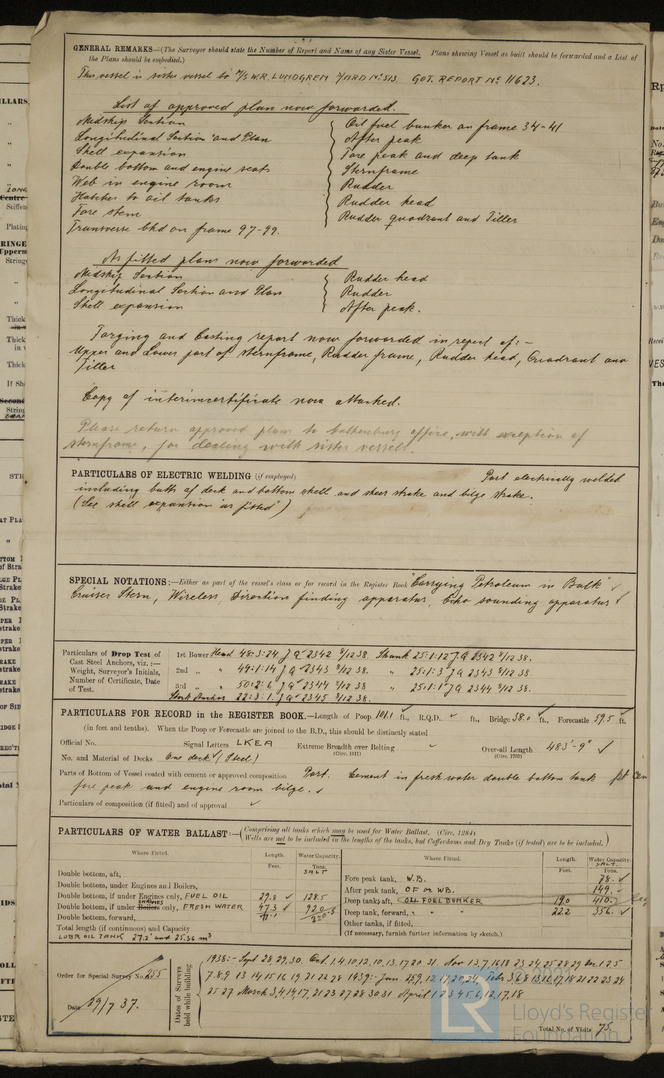 GENERAL REMARKS—(The Surveyor should state the Number of Report and Name of any Sister Vessel. Plans showing Vessel as built should be forwarded and a List of
the Plans should be embodied.)
This vessel is sister vessel to M/S W.R. LUNDGREN YARD No 513. GOT. REPORT No 11623.
List of approved plan now forwarded.
Midship Section
Longitudinal Section and Plan
Shell expansion
Double bottom and engine seats
Web in engine room
Hatches to oil tanks
Fore stem
Transverse bhd on frame 97-99.
Oil fuel bunker on frame 34-41
After peak
Fore peak and deep tank
Sternframe
Rudder
Rudder head
Rudder quadrant and Tiller
As fitted plans now forwarded
Midship Section
Longitudinal Section and Plan
Shell expansion
Rudder head
Rudder
After peak.
Forging and Casting report now forwarded in respect of:-
Upper and Lower part of sternframe, Rudder frame, Rudder head, Quadrant and
Tiller
Copy of interimcertificate now attached.
Please return approved plans to Gothenburg office, with exception of
sternframe, for dealing with sister vessel.
PARTICULARS OF ELECTRIC WELDING (if employed) Part electrically welded
including butts of deck and bottom shell and sheer strake and bilge strake.
(See shell expansion as fitted)
SPECIAL NOTATIONS:—Either as part of the vessel's class or for record in the Register Book "Carrying Petroleum in Bulk"
Cruiser Stern, Wireless Direction finding apparatus, Echo sounding apparatus
Particulars of Drop Test of
Cast Steel Anchors, viz.:—
Weight, Surveyor's Initials,
Number of Certificate, Date
of Test.
1st Bower Head 48:3:24 2342 12 38. Shank 25:1:12 2342 12 38.
2nd " " 49:1:14 2343 12 38. " 25:1:3 2343 12 38
3rd " " 50:2:6 2344 12 38 " 25:1:1 2344 12 38
22:3:1 2345 12 38.
PARTICULARS FOR RECORD in the REGISTER BOOK.—Length of Poop 101.1 ft., R.Q.D. ft., Bridge 38.0 ft., Forecastle 59.5 ft.
(in feet and tenths). When the Poop or Forecastle are joined to the B.D., this should be distinctly stated
Official No. Signal Letters LKEA Extreme Breadth over Belting (Circ. 1611) Over-all Length (Circ. 1703) 483'-9"
No. and Material of Decks One deck (Steel)
Parts of Bottom of Vessel coated with cement or approved composition Part. Cement in fresh water double bottom tank
fore peak and engine room bilge.
Particulars of composition (if fitted) and of approval
PARTICULARS OF WATER BALLAST:—(Comprising all tanks which may be used for Water Ballast. (Circ. 1284)
Wells are not to be included in the lengths of the tanks, but Cofferdams and Dry Tanks (if tested) are to be included.)
Where Fitted. Length. Water Capacity. Where Fitted. Length. Water Capacity.
Feet. Tons. SALT Feet. Tons. SALT.
Double bottom, aft,
Double bottom, under Engines and Boilers,
Double bottom, if under Engines only, FUEL OIL 29.8 128.5
Double bottom, if under Boilers ENGINES only, FRESH WATER 47.3 92.0
Double bottom, forward,
Total length (if continuous) and Capacity
LUBR OIL TANK 27.2' and 25.36 m³
Fore peak tank, W.B. 78.
After peak tank, OF OR WB. 149.
Deep tank, aft, OIL FUEL BUNKER 19.0 410.
Deep tank, forward, 22.2 356.
Other tanks, if fitted,
(If necessary, furnish further information by sketch.)
Order for Special Survey No. 255
Date 29/7 37.
Dates of Surveys held while building
1938:- Sept 28, 29, 30. Oct 1, 4, 10, 12, 10, 13, 17, 20 31. Nov 13, 7, 16, 18 23, 24, 25 28 29 Dec 1 2 5
7. 8. 9 13 14 15 16 19 21 22 28 1939:- Jan
25 27 March 3, 4, 14, 17, 21 23 27 28 30 31 April 1 2 3 4 5 6, 12, 17, 18
Total No. of Visits 75.
LR
Lloyd's Register
Foundation